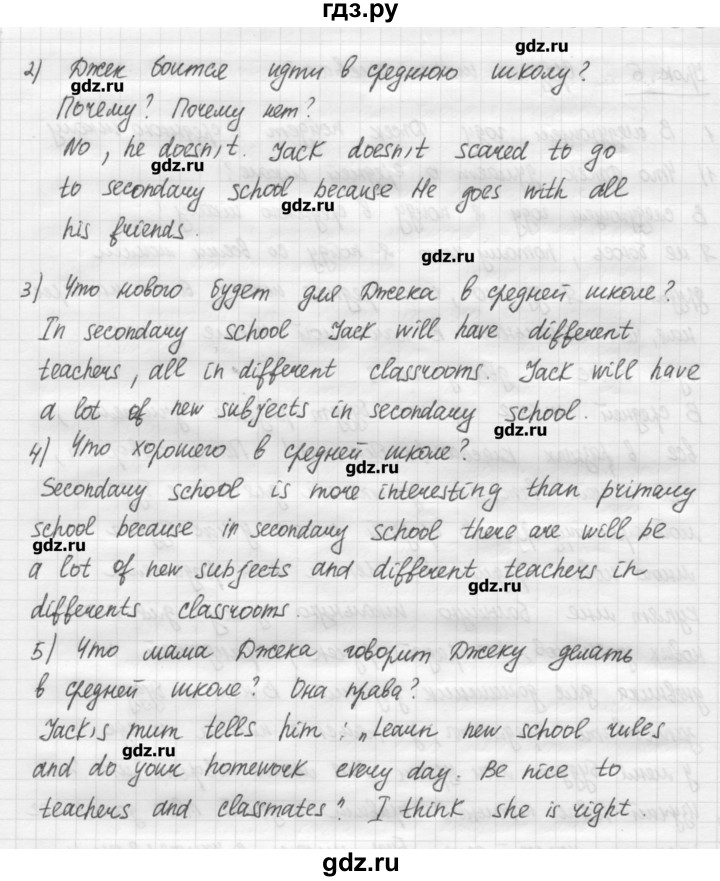 гдз.ру
gdz.ru
2) Джек боится идти в среднюю школу?
gdz.ru
Почему? Почему нет?
No, he doesn,t. Jack doesn,t scared to go
gdz.ru
to secondary school because He goes with all
gdz.ru
his friends.
gdz.ru
3) Что нового будет для Джека в средней школе?
In secondary school Jack will have different
teachers, all in different classrooms. Jack will have
a lot of new subjects in secondary school.
gdz.ru
4) Что хорошего в средней школе?
gdz.ru
Secondary school is more interesting than primary
school because in secondary school there are will be
gdz.ru
a lot of new subjects and different teachers in
gdz.ru
differents classrooms
5) Что мама Джека говорит Джеку делать
в средней школе? Она права?
Jack,s mum tells him: „Learn new school rules
gdz.ru
and do your homework every day. Be nice to
teachers and classmates" I think she is right.
gdz.ru